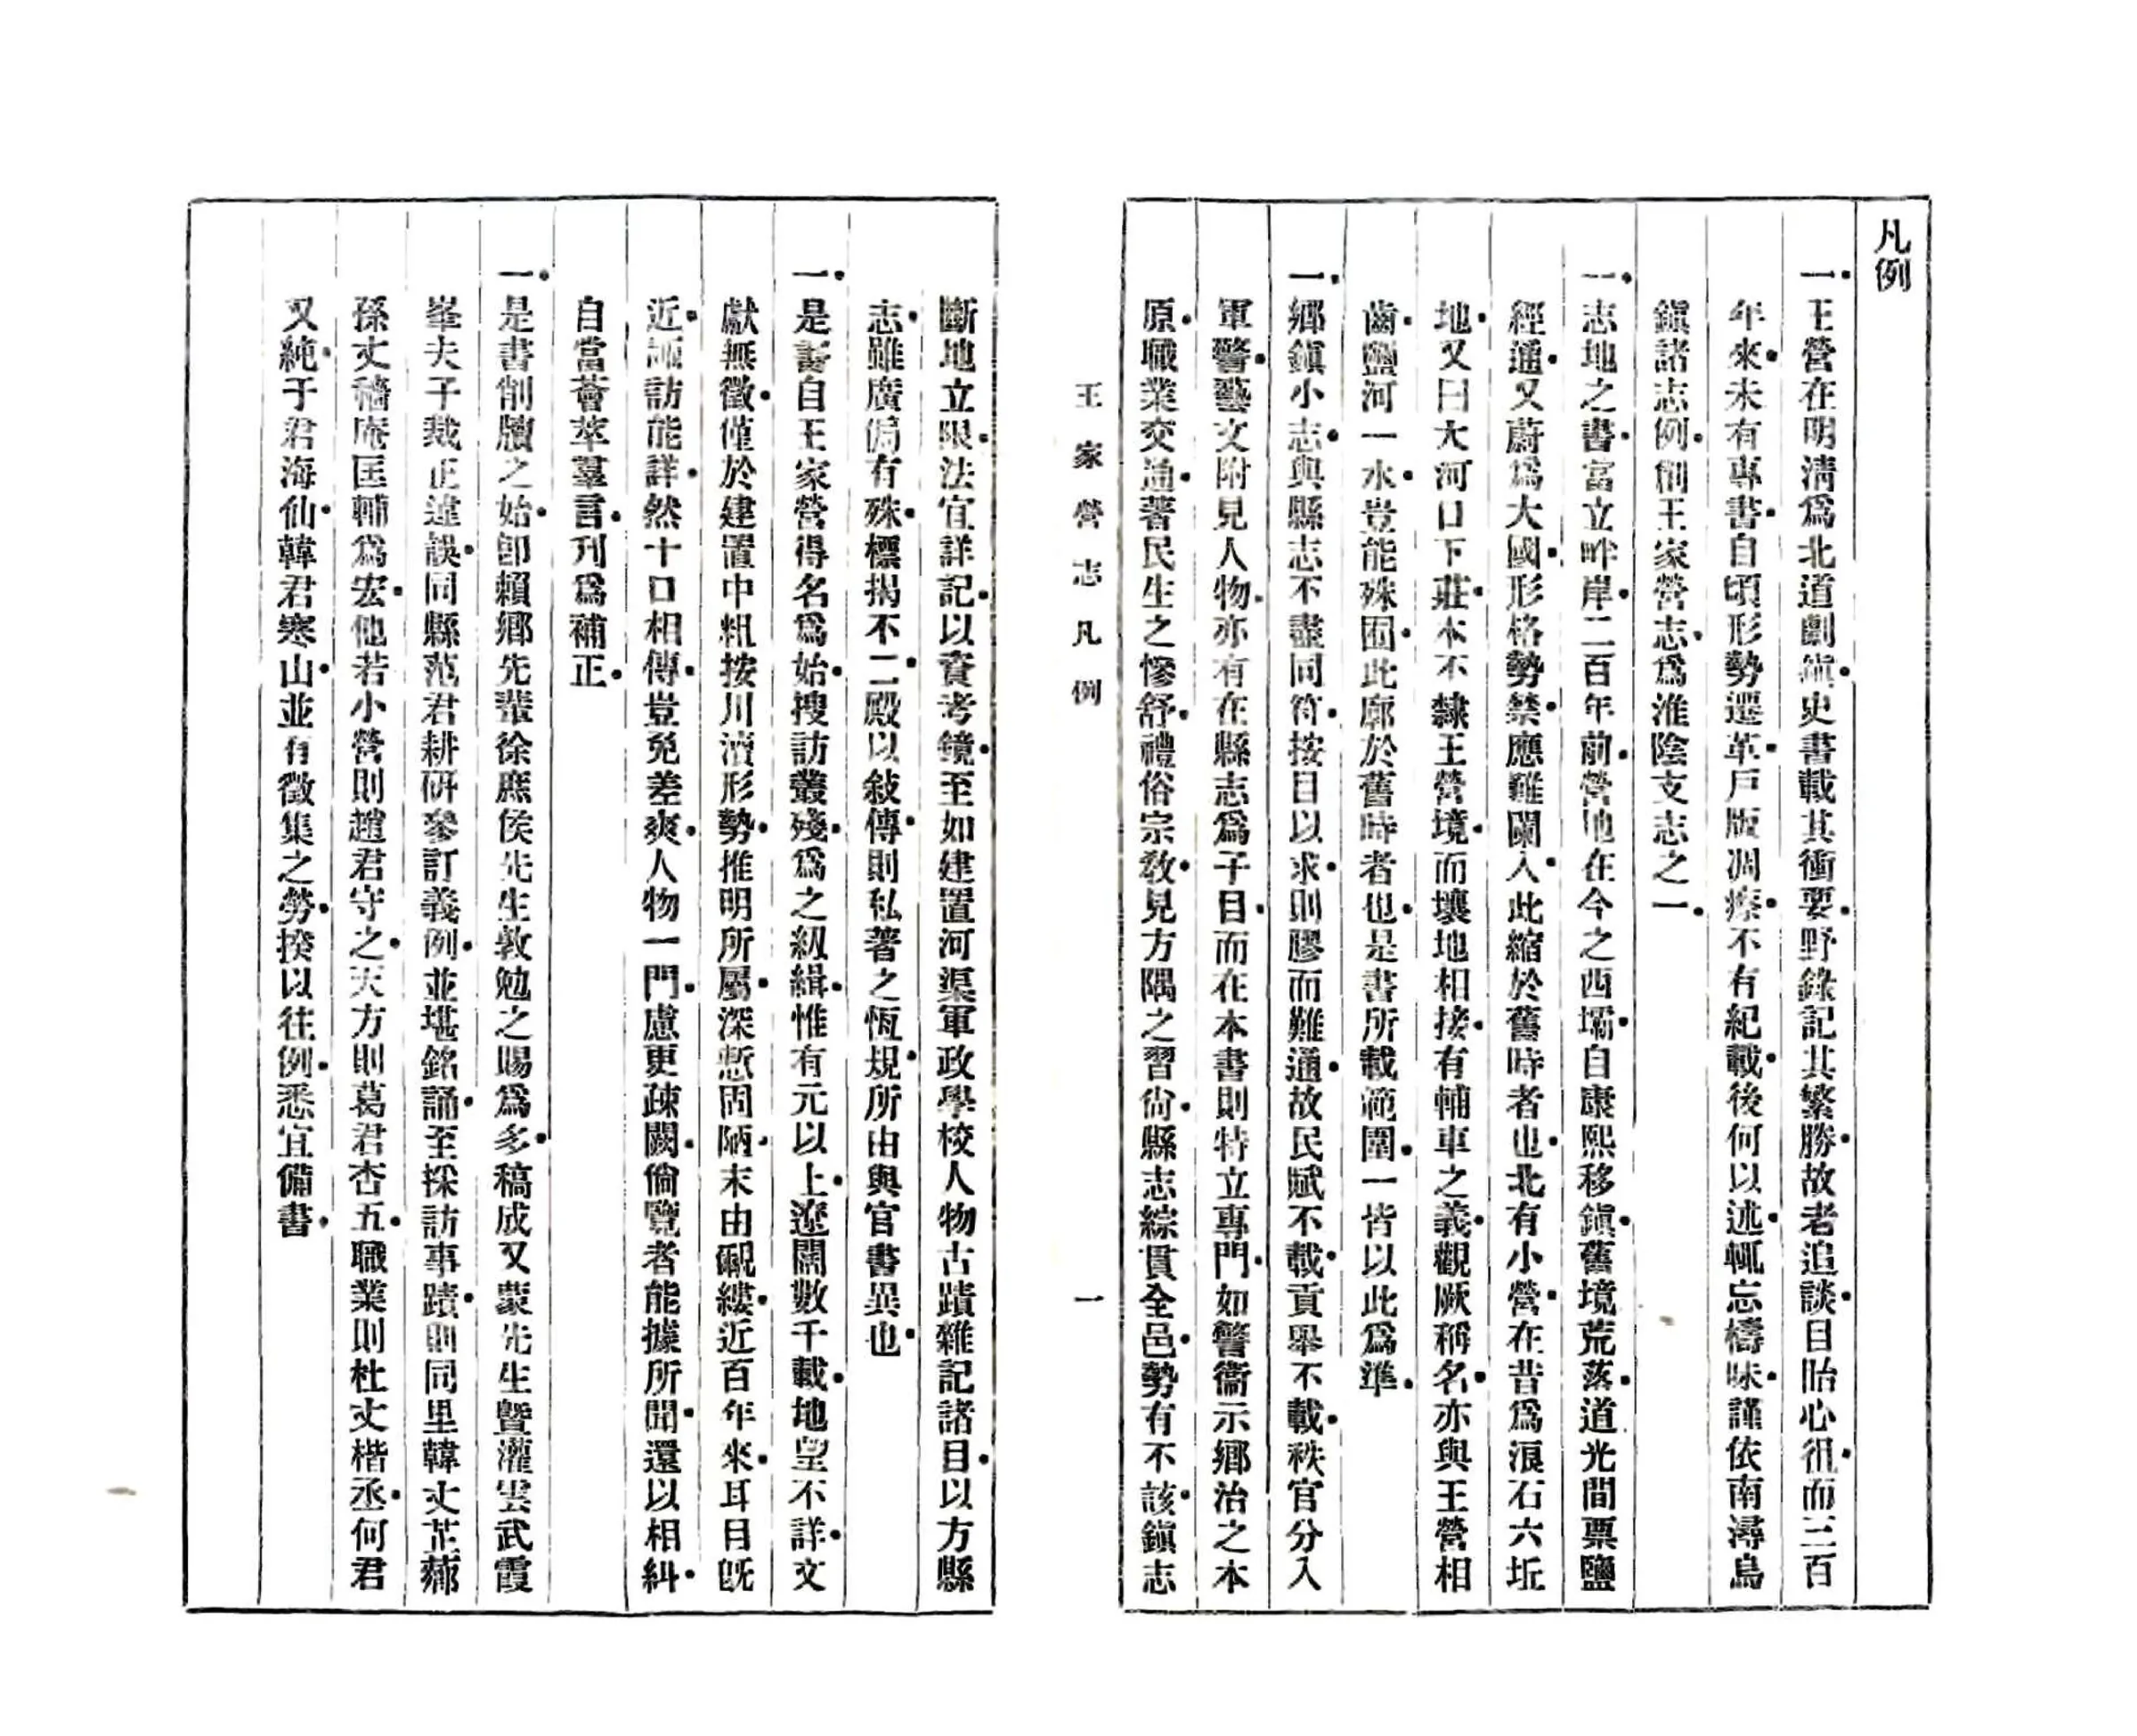 凡例
一・王營在明清爲北道劇鎭・史書載其衝要・野錄記其繁勝・故老追談・目眙心徂・而三百
年來・未有專書・自頃形勢遷革・戶版凋瘵・不有紀載・後何以述・輒忘檮昧・謹依南潯烏
鎭諸志例・創王家營志・爲淮陰支志之一・
一・志地之書・富立畔岸・二百年前・營地在今之西壩・自康熙移鎭・舊境荒落・道光間票鹽
經通・又蔚爲大國・形格勢禁・應難闌入・此縮於舊時者也・北有小營・在昔爲浪石六坵
地・又曰大河口下莊・本不隸王營境・而壤地相接・有輔車之義・觀厥稱名・亦與王營相
齒・鹽河一水・豈能殊囿・此廓於舊時者也・是書所載範圍・一皆以此爲準・
一・鄉鎭小志・與縣志不盡同符・按目以求・則膠而難通・故民賦不載・貢舉不載・秩官分入
軍警・藝文附見人物・亦有在縣志爲子目・而在本書則特立專門・如警衞示鄉治之本
原・職業交通・著民生之慘舒・禮俗宗敎・見方隅之習尙・縣志綜貫全邑・勢有不該・鎭志
王家營志凡例
一
斷地立限・法宜詳記・以資考鏡・至如建置河渠軍政學校人物古蹟雜記諸目・以方縣
志・雖廣侷有殊・標揭不二・殿以敍傳・則私著之恆規・所由與官書異也・
一・是書自王家營得名爲始・搜訪叢殘・爲之紉緝・惟有元以上・遼闊數千載・地望不詳・文
獻無徵・僅於建置中粗按川瀆形勢・推明所屬・深慙固陋・末由覼縷・近百年來・耳目旣
近・諏訪能詳・然十口相傳・豈免差爽・人物一門・慮更疎闕・倘覽者能據所聞・還以相糾・
自當薈萃羣言・刊爲補正・
一・是書削牘之始・卽賴鄉先輩徐庶侯先生敦勉之賜爲多・稿成又蒙先生曁灌雲武霞
峯夫子裁正違誤・同縣范君耕硏參訂義例・並堪銘誦・至採訪事蹟・則同里韓丈芷薌
孫丈穡庵匡輔爲宏・他若小營則趙君守之・天方則葛君杏五・職業則杜丈楷丞・何君
又純・于君海仙・韓君寒山・並有徵集之勞・揆以往例・悉宜備書・